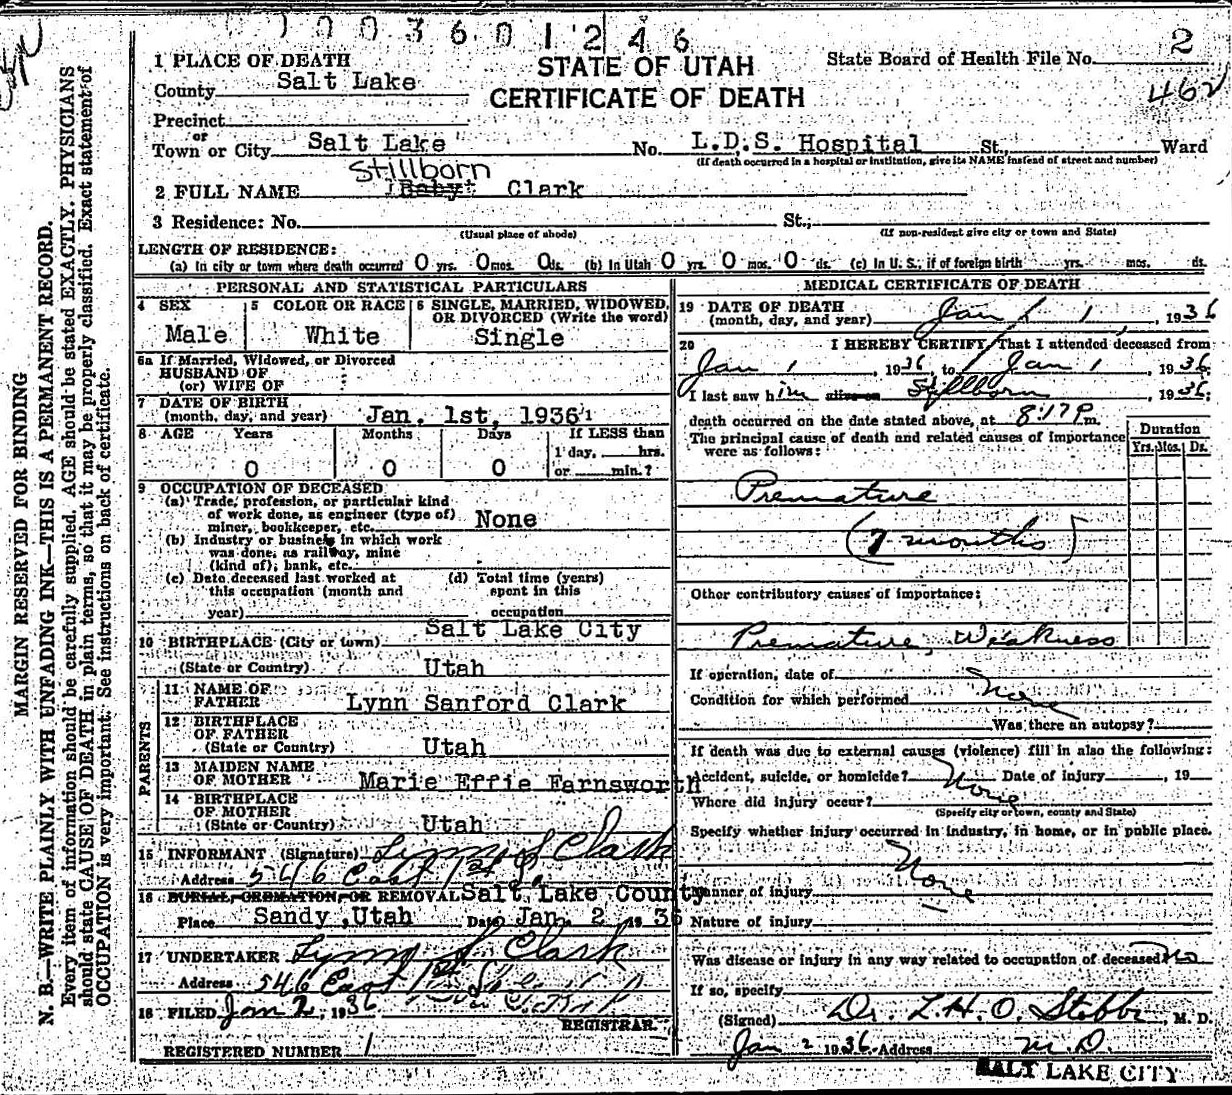 1003601246
2
462
STATE OF UTAH
CERTIFICATE OF DEATH
State Board of Health File No.
1 PLACE OF DEATH
County Salt Lake
Precinct
or
Town or City Salt Lake No. L.D.S. Hospital St., Ward
(If death occurred in a hospital or institution, give its NAME instead of street and number)
Stillborn
2 FULL NAME (Baby) Clark
3 Residence: No. St.,
(Usual place of abode) (If non-resident give city or town and State)
LENGTH OF RESIDENCE:
(a) In city or town where death occurred 0 yrs. 0 mos. 0 ds. (b) In Utah 0 yrs. 0 mos. 0 ds. (c) In U. S., if of foreign birth yrs. mos. ds.
PERSONAL AND STATISTICAL PARTICULARS
4 SEX 5 COLOR OR RACE 6 SINGLE, MARRIED, WIDOWED,
OR DIVORCED (Write the word)
Male White Single
6a If Married, Widowed, or Divorced
HUSBAND OF
(or) WIFE OF
7 DATE OF BIRTH
(month, day, and year) Jan. 1st, 1936
8 AGE Years Months Days If LESS than
1 day, hrs.
0 0 0 or min.?
9 OCCUPATION OF DECEASED
(a) Trade, profession, or particular kind
of work done, as engineer (type of)
miner, bookkeeper, etc. None
(b) Industry or business in which work
was done, as railway, mine
(kind of), bank, etc.
(c) Date deceased last worked at (d) Total time (years)
this occupation (month and spent in this
year) occupation
10 BIRTHPLACE (City or town) Salt Lake City
(State or Country) Utah
PARENTS
11 NAME OF
FATHER Lynn Sanford Clark
12 BIRTHPLACE
OF FATHER
(State or Country) Utah
13 MAIDEN NAME
OF MOTHER Marie Effie Farnsworth
14 BIRTHPLACE
OF MOTHER
(State or Country) Utah
15 INFORMANT (Signature) Lynn S Clark
Address 546 East 1st S.
16 BURIAL, CREMATION, OR REMOVAL Salt Lake County
Place Sandy, Utah Date Jan. 2 1936
17 UNDERTAKER Lynn S. Clark
Address 546 East 1st So.
18 FILED Jan 2, 1936
REGISTRAR.
REGISTERED NUMBER 1
MEDICAL CERTIFICATE OF DEATH
19 DATE OF DEATH
(month, day, and year) Jan 1, 1936
20 I HEREBY CERTIFY, That I attended deceased from
Jan 1, 1936, to Jan 1, 1936;
I last saw him alive on Stillborn, 1936;
death occurred on the date stated above, at 8:17 P m.
The principal cause of death and related causes of importance
were as follows:
Duration
Yrs. Mos. Ds.
Premature
(7 months)
Other contributory causes of importance:
Premature, Weakness
If operation, date of
Condition for which performed None
Was there an autopsy?
If death was due to external causes (violence) fill in also the following:
Accident, suicide, or homicide? None Date of injury , 19
Where did injury occur?
(Specify city or town, county and State)
Specify whether injury occurred in industry, in home, or in public place.
None
Manner of injury
Nature of injury
Was disease or injury in any way related to occupation of deceased? No
If so, specify
(Signed) Dr. L.H.O. Stobbe, M. D.
Jan 2 1936 Address M.D.
SALT LAKE CITY
MARGIN RESERVED FOR BINDING
N. B.—WRITE PLAINLY WITH UNFADING INK—THIS IS A PERMANENT RECORD.
Every item of information should be carefully supplied. AGE should be stated EXACTLY. PHYSICIANS
should state CAUSE OF DEATH in plain terms, so that it may be properly classified. Exact statement of
OCCUPATION is very important. See instructions on back of certificate.